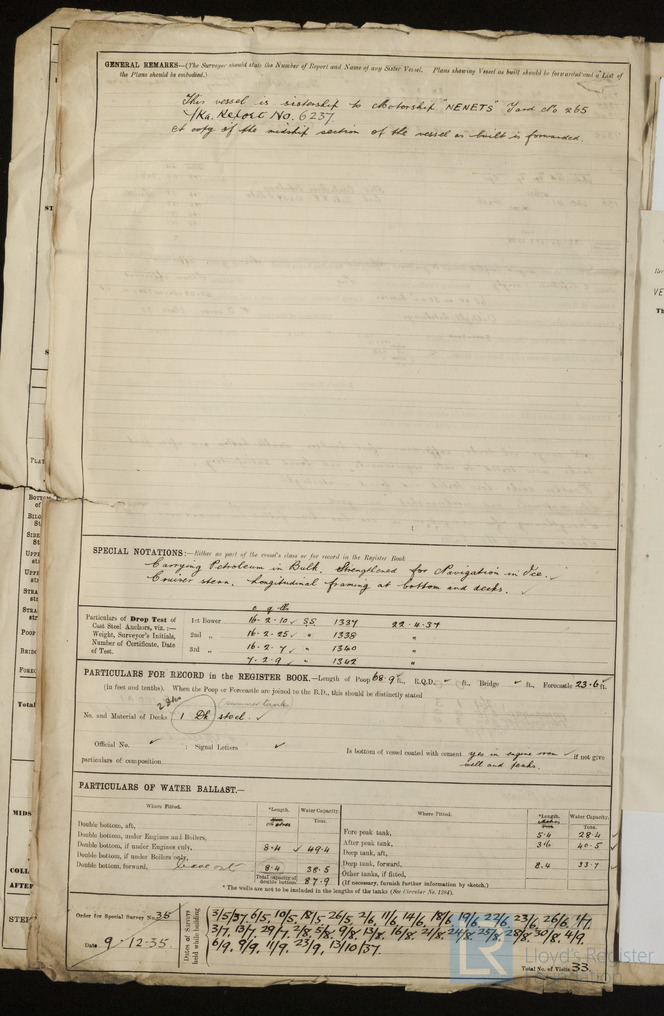 GENERAL REMARKS—(The Surveyor should state the Number of Report and Name of any Sister Vessel. Plans showing Vessel as built should be forwarded and a List of
the Plans should be embodied.)
This vessel is sistership to Motorship "NENETS" Yard No 265
Ka. Report No. 6237.
A copy of the midship section of the vessel as built is forwarded.
SPECIAL NOTATIONS:—Either as part of the vessel's class or for record in the Register Book
Carrying Petroleum in Bulk. Strengthened for Navigation in Ice.
Cruiser stern. Longitudinal framing at bottom and decks.
Particulars of Drop Test of
Cast Steel Anchors, viz.:—
Weight, Surveyor's Initials,
Number of Certificate, Date
of Test.
c q lbs
1st Bower 16-2-10 S.S. 1337 22-4-37
2nd „ 16-2-25 " 1338 "
3rd „ 16-2-7 " 1340 "
7-2-9 " 1342 "
PARTICULARS FOR RECORD in the REGISTER BOOK.—Length of Poop 68.9 ft., R.Q.D. ft., Bridge ft., Forecastle 23.6 ft.
(in feet and tenths). When the Poop or Forecastle are joined to the B.D., this should be distinctly stated
summer tank
No. and Material of Decks 1 Dk steel.
Official No. ; Signal Letters Is bottom of vessel coated with cement yes in engine room if not give
particulars of composition well and peaks.
PARTICULARS OF WATER BALLAST.—
Where Fitted. *Length. Water Capacity.
Tons.
Double bottom, aft,
Double bottom, under Engines and Boilers,
Double bottom, if under Engines only, 8.4 49.4
Double bottom, if under Boilers only,
Double bottom, forward, 8.4 38.5
Total capacity of
double bottom 87.9
Where Fitted. *Length. Water Capacity.
Tons.
Fore peak tank, 5.4 28.4
After peak tank, 3.6 40.5
Deep tank, aft,
Deep tank, forward, 8.4 33.7
Other tanks, if fitted,
(If necessary, furnish further information by sketch.)
* The wells are not to be included in the lengths of the tanks (See Circular No. 1284).
Order for Special Survey No. 35
Date 9-12-35.
Dates of Surveys
held while building
3/5/37. 6/5, 10/5, 18/5, 26/5, 2/6, 11/6, 14/6, 18/6, 19/6, 22/6, 23/6, 26/6, 1/7,
3/7, 13/7, 29/7, 2/8, 5/8, 9/8, 13/8, 16/8, 21/8, 24/8, 25/8, 28/8, 30/8, 4/9,
6/9, 9/9, 11/9, 23/9, 13/10/37.
Total No. of Visits 33.
LR
Lloyd's Register
Foundation